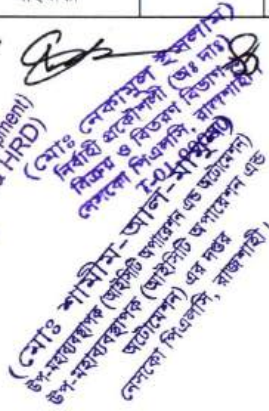 opment)
HRD)
(মোঃ নেকামুল ইসলাম)
নির্বাহী প্রকৌশলী (অঃ দাঃ)
বিক্রয় ও বিতরণ বিভাগ-
নেসকো পিএলসি, রাজশাহী।
T-01
(মোঃ শামীম-আল-মামুন)
উপ-মহাব্যবস্থাপক (আইসিটি অপারেশন এন্ড অটোমেশন)
উপ-মহাব্যবস্থাপক (আইসিটি অপারেশন এন্ড
অটোমেশন) এর দপ্তর
নেসকো পিএলসি, রাজশাহী।